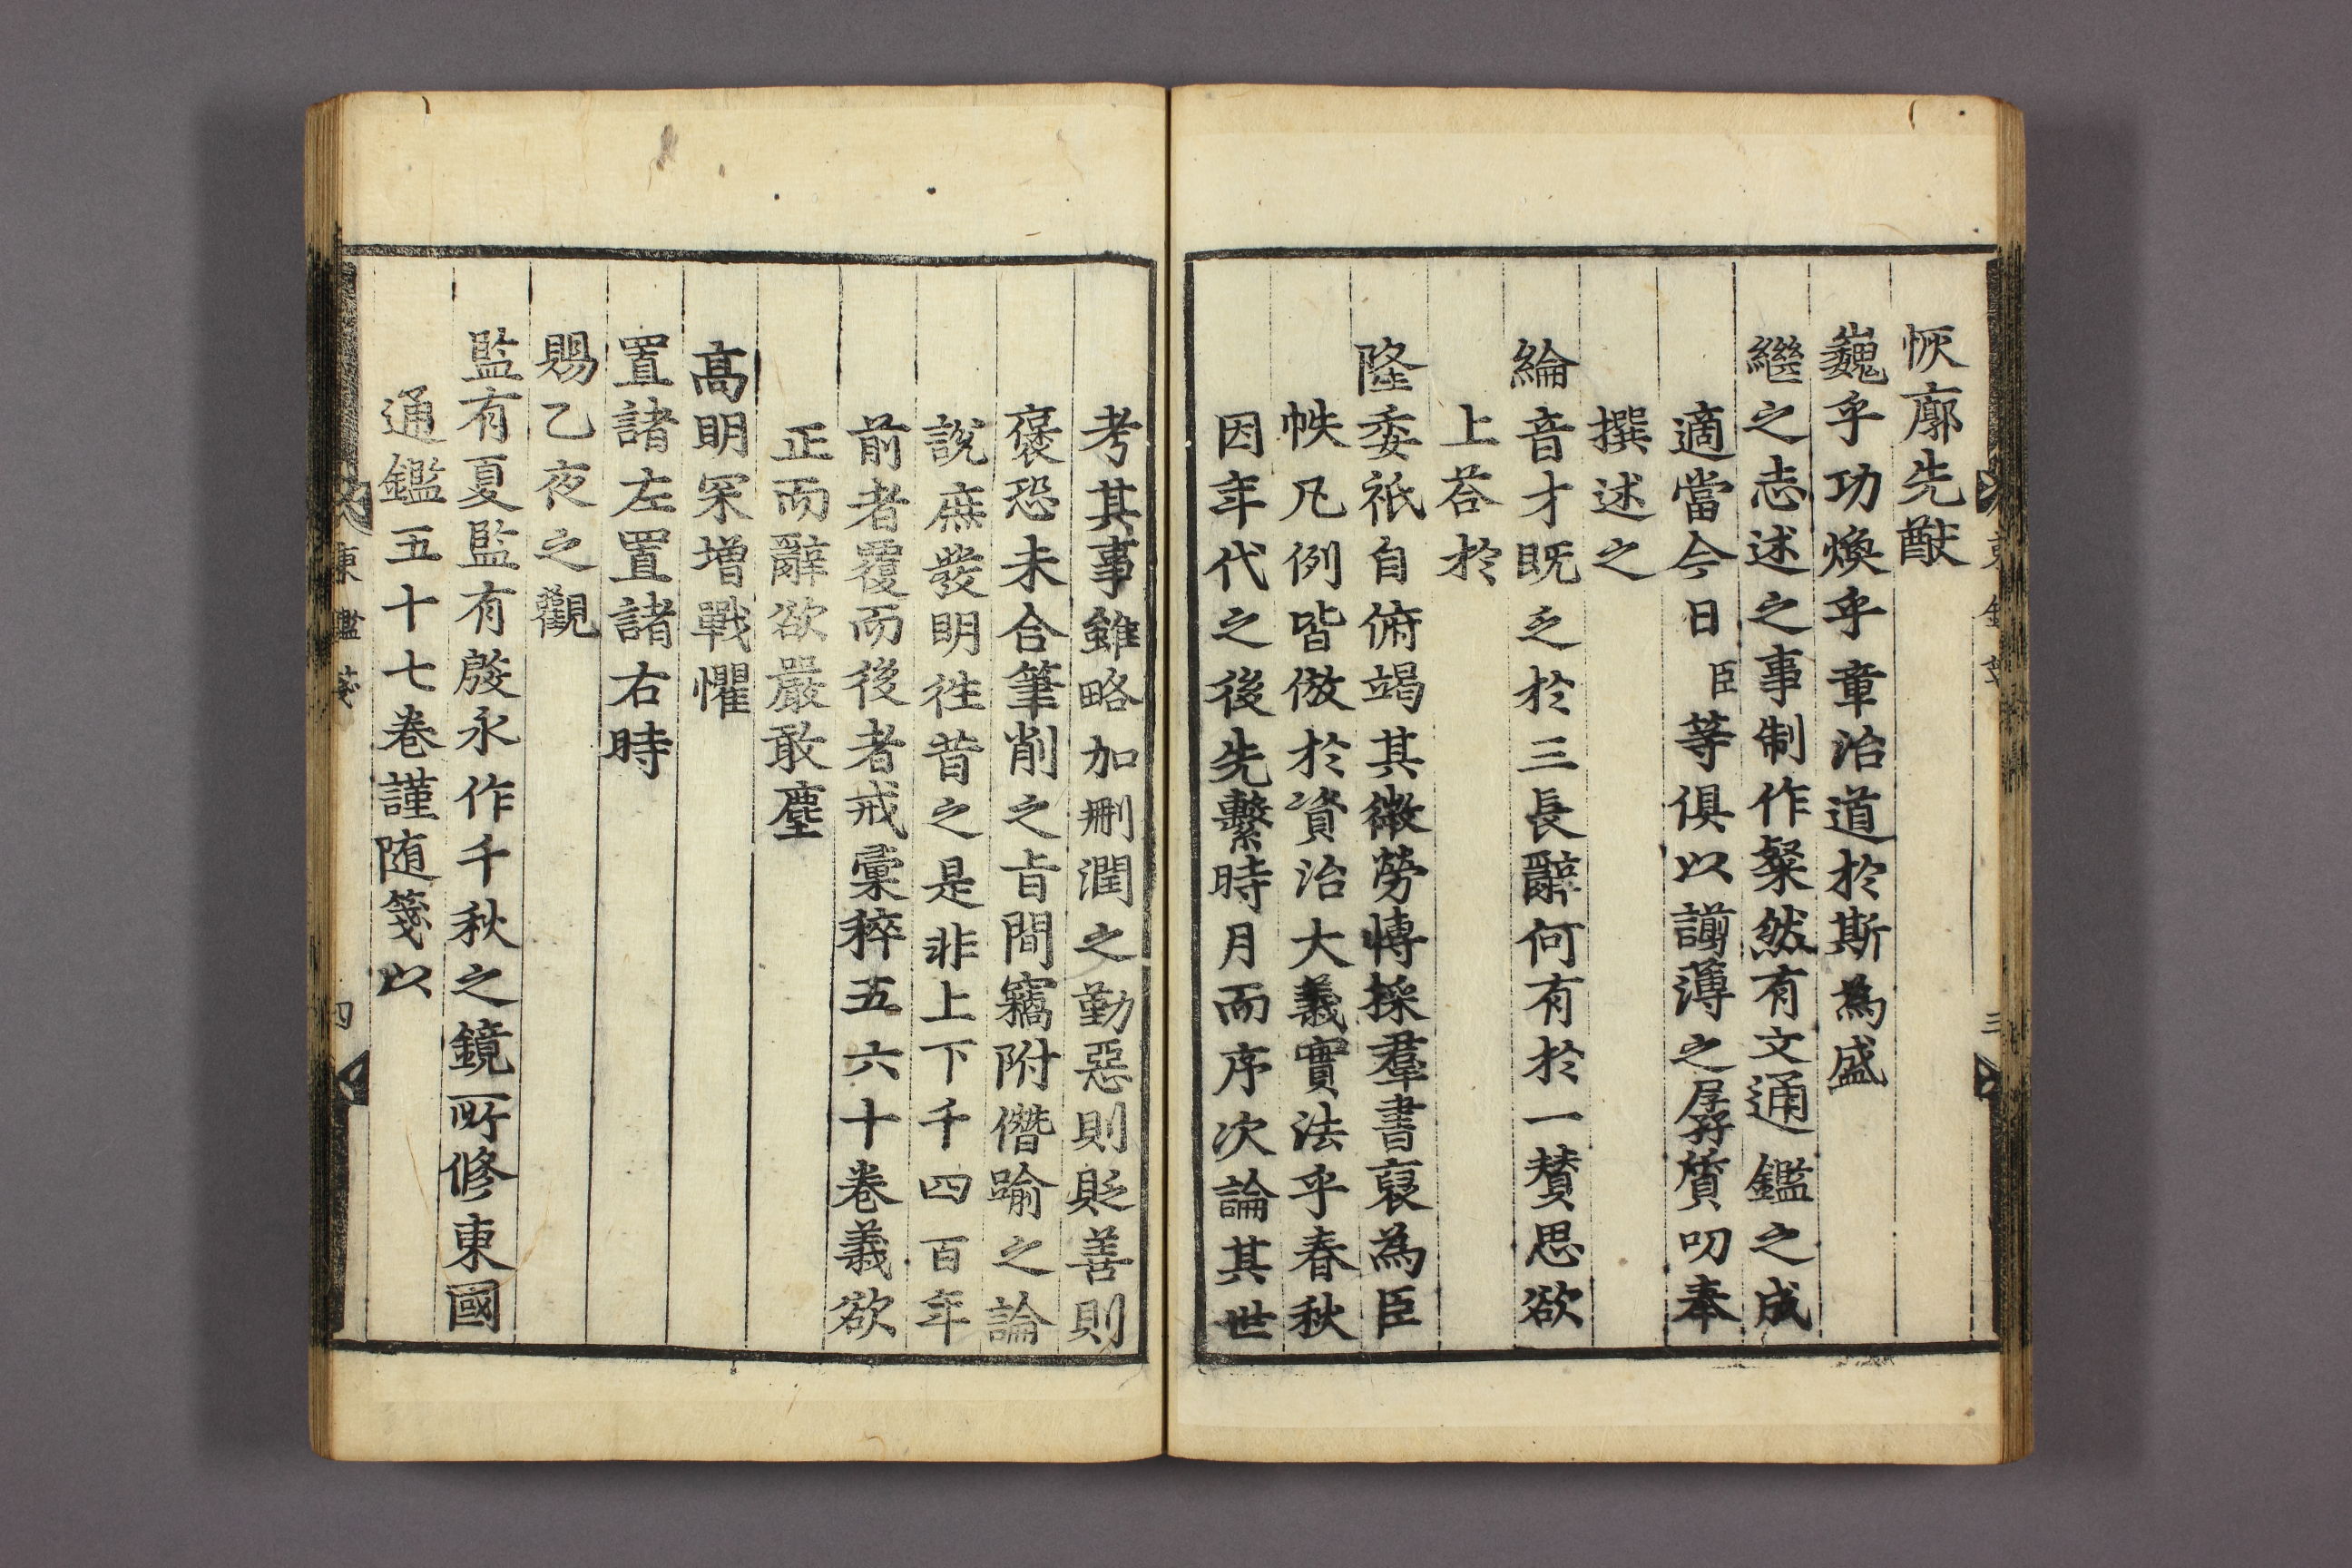 恢廓先猷
巍乎功煥乎章治道於斯為盛
繼之志述之事制作粲然有文通鑑之成
適當今日臣等俱以謭薄之孱質叨奉
撰述之
綸音才旣乏於三長辭何有於一賛思欲
上荅於
隆委祇自俯竭其微勞慱採羣書裒為臣
帙凡例皆倣於資治大義實法乎春秋
因年代之後先繫時月而序次論其世
考其事雖略加刪潤之勤惡則貶善則
褒恐未合筆削之㫖間竊附僭踰之論
說庶發明徃昔之是非上下千四百年
前者覆而後者戒彙稡五六十卷義欲
正而辭欲嚴敢塵
高明罙增戰懼
置諸左置諸右時
賜乙夜之觀
監有夏監有殷永作千秋之鏡所修東國
通鑑五十七卷謹随箋以
東鑑箋
四